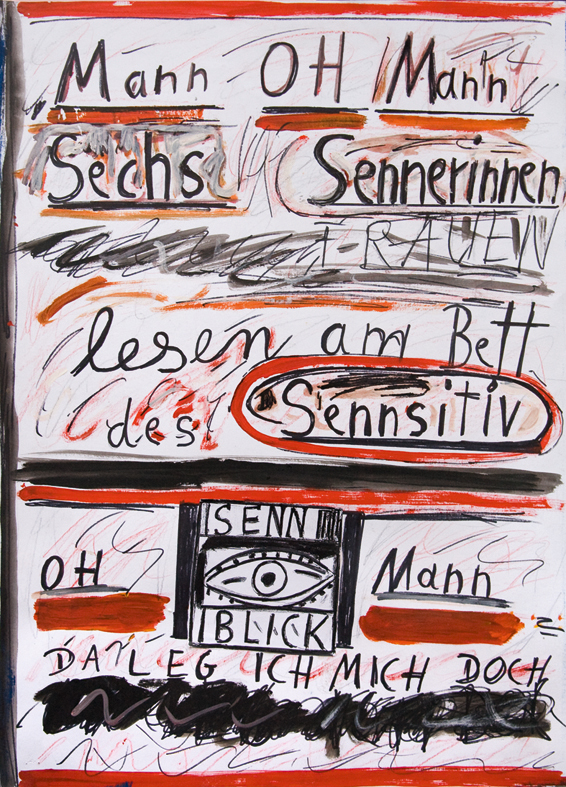 Mann OH Mann
Sechs Sennerinnen
FRAUEN
lesen am Bett
des Sennsitiv
SENN
OH Mann
BLICK
DA LEG ICH MICH DOCH